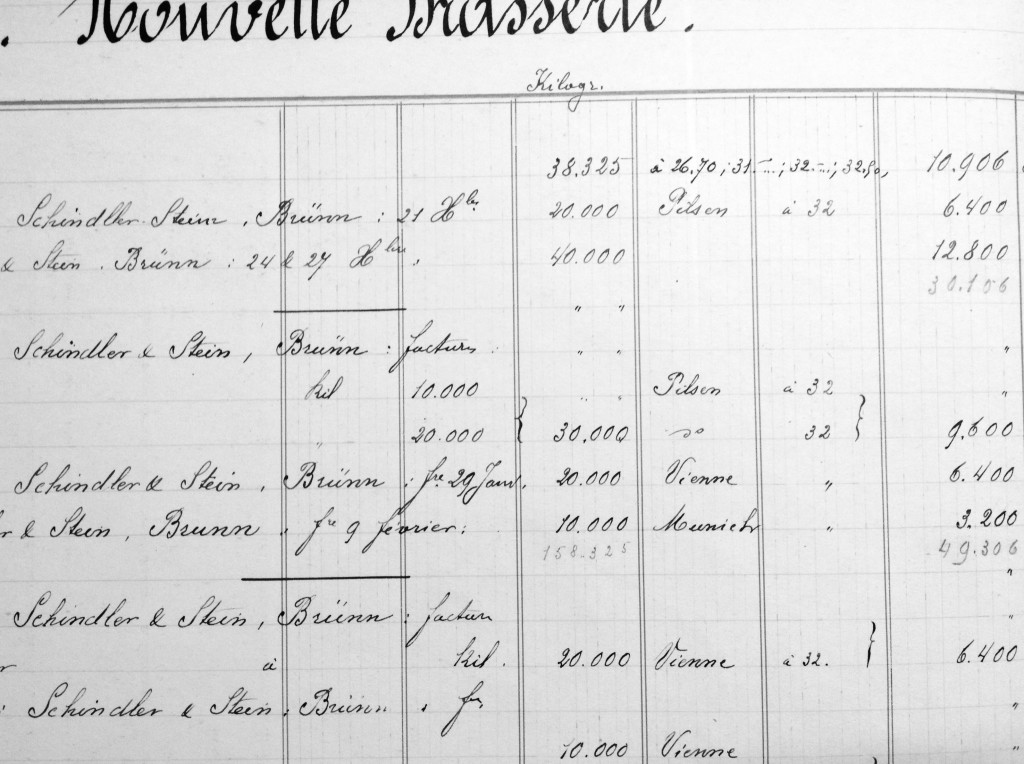 . Nouvelle Brasserie.
Kilogr.
38.325 à 26.70; 31.–; 32.–; 32.50, 10.906
Schindler Stein, Brünn : 21 Hbre 20.000 Pilsen à 32 6.400
& Stein. Brünn : 24 & 27 Hbre, 40.000 12.800
30.106
" "
Schindler & Stein, Brünn : facture " " "
kil 10.000 " " Pilsen à 32 "
" 20.000 } 30.000 do 32 } 9.600
Schindler & Stein, Brünn : fre 29 Janv. 20.000 Vienne " 6.400
r & Stein, Brunn " fre 9 février : 10.000 Munich " 3.200
158.325 49.306
"
Schindler & Stein, Brünn : facture "
r à kil. 20.000 Vienne à 32. } 6.400
: Schindler & Stein : Brünn "
10.000 Vienne "